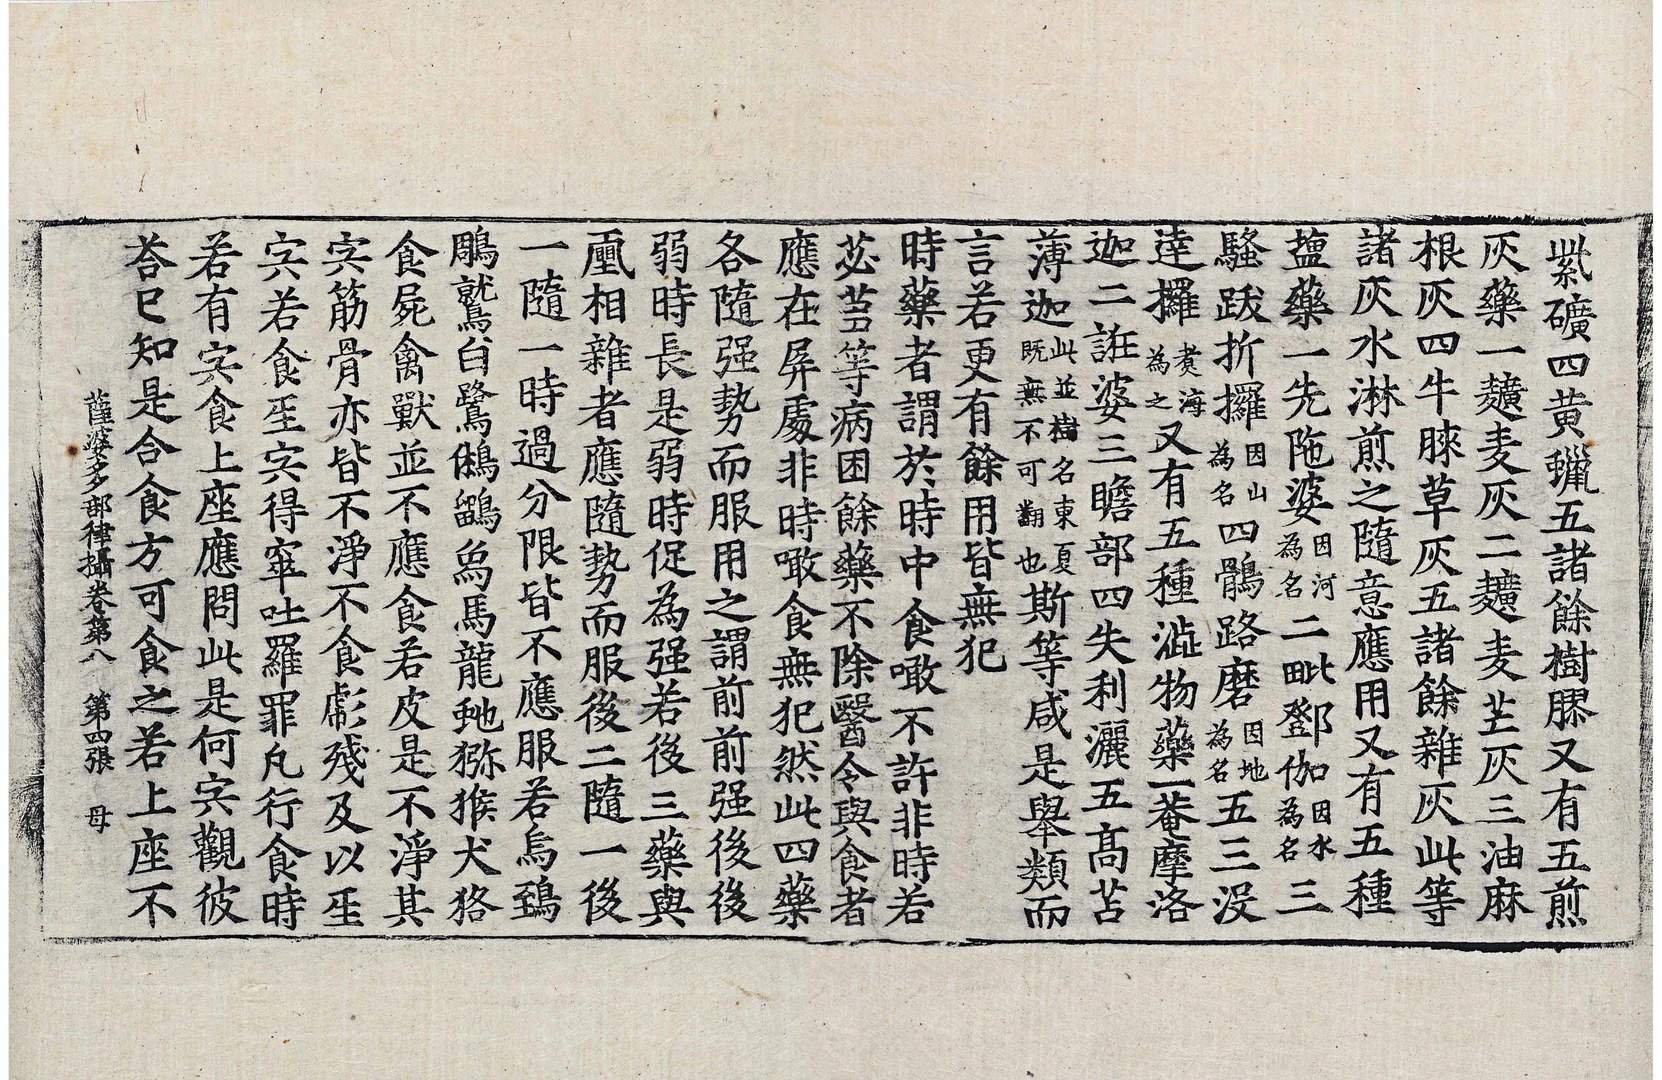 紫礦四黃蠟五諸餘樹膠又有五煎
灰藥一䵃麦灰二䵃麦芒灰三油麻
根灰四牛膝草灰五諸餘雜灰此等
諸灰水淋煎之隨意應用又有五種
盐藥一先陁婆因河為名二毗鄧伽因水為名三
騷跋折攞因山為名四鶻路磨因地為名五三没
達攞煑海為之又有五種澁物藥一菴摩洛
迦二誑婆三瞻部四失利灑五高苫
薄迦此並樹名東夏既無不可翻也斯等咸是舉類而
言若更有餘用皆無犯
時藥者謂於時中食噉不許非時若
苾芻等病困餘藥不除醫令與食者
應在屏處非時噉食無犯然此四藥
各隨强勢而服用之謂前前强後後
弱時長是弱時促為强若後三藥與
前相雜者應隨勢而服後二隨一後
一隨一時過分限皆不應服若烏鵄
鵰鷲白鷺鵂鶹象馬龍虵猕猴犬狢
食屍禽獸並不應食若皮是不淨其
宍筋骨亦皆不淨不食虧殘及以生
宍若食生宍得窣吐羅罪凡行食時
若有宍食上座應問此是何宍觀彼
荅已知是合食方可食之若上座不
薩婆多部律攝卷第八　第四張　母